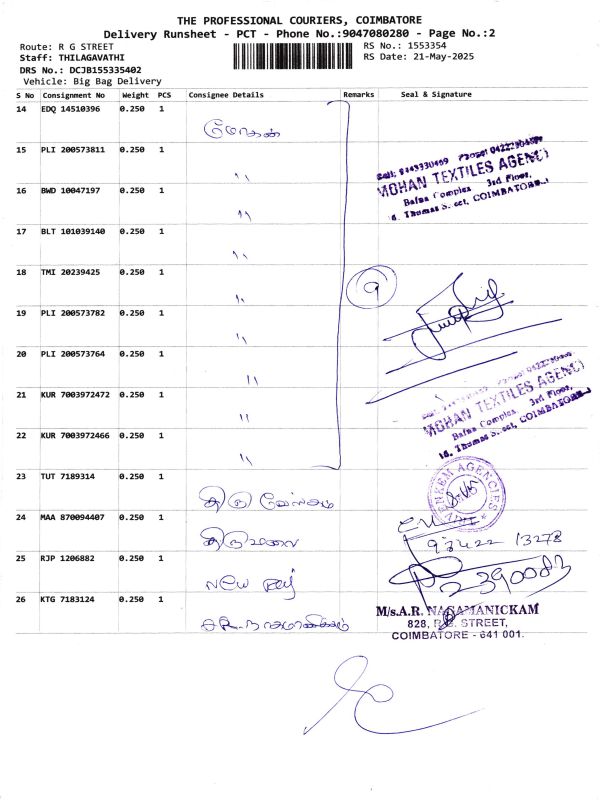 THE PROFESSIONAL COURIERS, COIMBATORE
Delivery Runsheet - PCT - Phone No.:9047080280 - Page No.:2
Route: R G STREET
RS No.: 1553354
Staff: THILAGAVATHI
RS Date: 21-May-2025
DRS No.: DCJB155335402
Vehicle: Big Bag Delivery
S No Consignment No Weight PCS Consignee Details Remarks Seal & Signature
14 EDQ 14510396 0.250 1
மோகன்
15 PLI 200573811 0.250 1
MOHAN TEXTILES AGENCY
16 BWD 10047197 0.250 1
Bafna Complex 3rd Floor,
COIMBATORE
17 BLT 101039140 0.250 1
18 TMI 20239425 0.250 1
9
19 PLI 200573782 0.250 1
20 PLI 200573764 0.250 1
21 KUR 7003972472 0.250 1
MOHAN TEXTILES AGENCY
Bafna Complex 3rd Floor,
COIMBATORE
22 KUR 7003972466 0.250 1
23 TUT 7189314 0.250 1
VENKEM AGENCIES
24 MAA 870094407 0.250 1
திருமலை
25 RJP 1206882 0.250 1
New
26 KTG 7183124 0.250 1
M/s.A.R. NAGAMANICKAM
828, R.G. STREET,
COIMBATORE - 641 001.